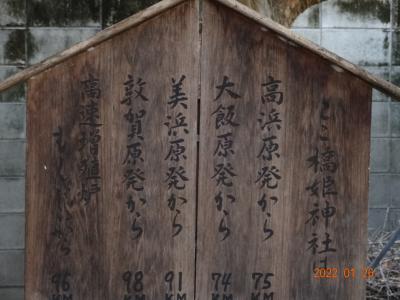 ここ橋姫神社は
高浜原発から 75KM
大飯原発から 74KM
美浜原発から 91KM
敦賀原発から 98KM
高速増殖炉
もんじゅから 96KM
2022 01 26